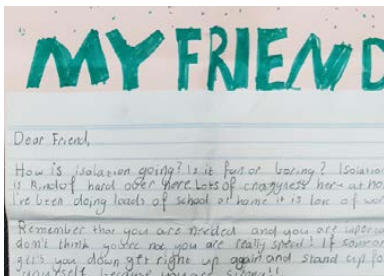 MY FRIEND
Dear Friend,
How is isolation going? Is it fun or boring? Isolation
is kindof hard over here. Lots of crazyness here at ho
I've been doing loads of school at home it is lots of wor
Remember that you are needed and you are
don't think you're not you are really special! If someon
gets you down get right up again and stand up fo
yourself because you are strong!!